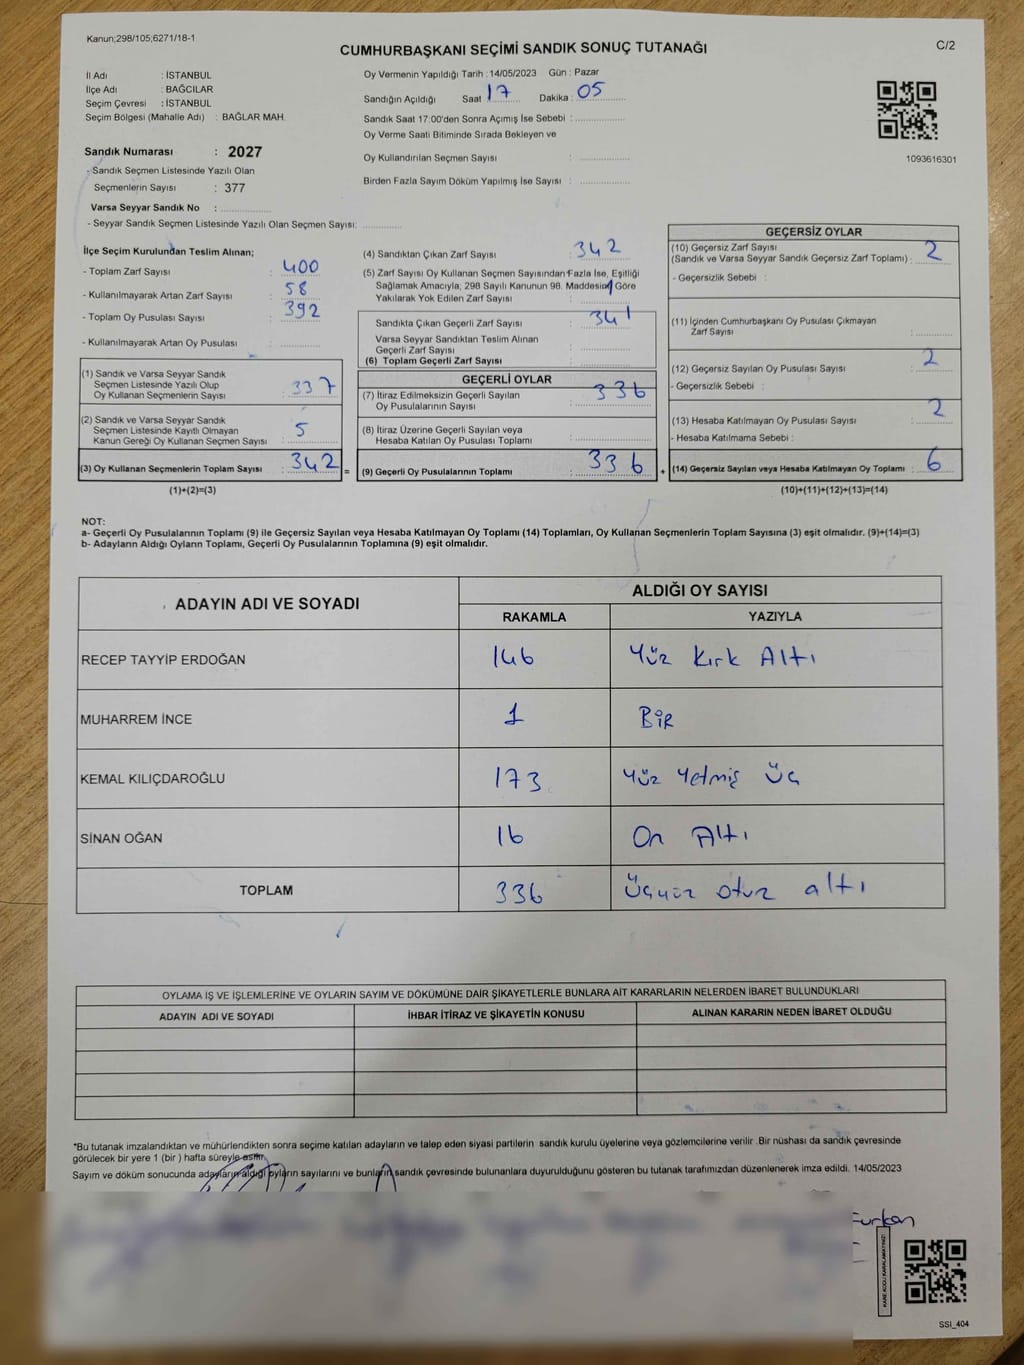 Kanun;298/105;6271/18-1
CUMHURBAŞKANI SEÇİMİ SANDIK SONUÇ TUTANAĞI
C/2
İl Adı : İSTANBUL
İlçe Adı : BAĞCILAR
Seçim Çevresi : İSTANBUL
Seçim Bölgesi (Mahalle Adı) : BAĞLAR MAH.
Sandık Numarası : 2027
- Sandık Seçmen Listesinde Yazılı Olan
Seçmenlerin Sayısı : 377
Varsa Seyyar Sandık No :
- Seyyar Sandık Seçmen Listesinde Yazılı Olan Seçmen Sayısı:
Oy Vermenin Yapıldığı Tarih : 14/05/2023 Gün : Pazar
Sandığın Açıldığı Saat 17 Dakika : 05
Sandık Saat 17:00'den Sonra Açımış İse Sebebi :
Oy Verme Saati Bitiminde Sırada Bekleyen ve
Oy Kullandırılan Seçmen Sayısı :
Birden Fazla Sayım Döküm Yapılmış İse Sayısı :
1093616301
İlçe Seçim Kurulundan Teslim Alınan;
- Toplam Zarf Sayısı : 400
- Kullanılmayarak Artan Zarf Sayısı : 58
- Toplam Oy Pusulası Sayısı : 392
- Kullanılmayarak Artan Oy Pusulası :
(1) Sandık ve Varsa Seyyar Sandık
Seçmen Listesinde Yazılı Olup
Oy Kullanan Seçmenlerin Sayısı : 337
(2) Sandık ve Varsa Seyyar Sandık
Seçmen Listesinde Kayıtlı Olmayan
Kanun Gereği Oy Kullanan Seçmen Sayısı : 5
(3) Oy Kullanan Seçmenlerin Toplam Sayısı : 342 =
(1)+(2)=(3)
(4) Sandıktan Çıkan Zarf Sayısı : 342
(5) Zarf Sayısı Oy Kullanan Seçmen Sayısından Fazla İse, Eşitliği
Sağlamak Amacıyla; 298 Sayılı Kanunun 98. Maddesine Göre
Yakılarak Yok Edilen Zarf Sayısı : 1
Sandıkta Çıkan Geçerli Zarf Sayısı : 341
Varsa Seyyar Sandıktan Teslim Alınan
Geçerli Zarf Sayısı :
(6) Toplam Geçerli Zarf Sayısı :
GEÇERLİ OYLAR
(7) İtiraz Edilmeksizin Geçerli Sayılan
Oy Pusulalarının Sayısı : 336
(8) İtiraz Üzerine Geçerli Sayılan veya
Hesaba Katılan Oy Pusulası Toplamı :
(9) Geçerli Oy Pusulalarının Toplamı : 336 +
GEÇERSİZ OYLAR
(10) Geçersiz Zarf Sayısı
(Sandık ve Varsa Seyyar Sandık Geçersiz Zarf Toplamı) : 2
- Geçersizlik Sebebi :
(11) İçinden Cumhurbaşkanı Oy Pusulası Çıkmayan
Zarf Sayısı :
(12) Geçersiz Sayılan Oy Pusulası Sayısı : 2
- Geçersizlik Sebebi :
(13) Hesaba Katılmayan Oy Pusulası Sayısı : 2
- Hesaba Katılmama Sebebi :
(14) Geçersiz Sayılan veya Hesaba Katılmayan Oy Toplamı : 6
(10)+(11)+(12)+(13)=(14)
NOT:
a- Geçerli Oy Pusulalarının Toplamı (9) ile Geçersiz Sayılan veya Hesaba Katılmayan Oy Toplamı (14) Toplamları, Oy Kullanan Seçmenlerin Toplam Sayısına (3) eşit olmalıdır. (9)+(14)=(3)
b- Adayların Aldığı Oyların Toplamı, Geçerli Oy Pusulalarının Toplamına (9) eşit olmalıdır.
ADAYIN ADI VE SOYADI
ALDIĞI OY SAYISI
RAKAMLA YAZIYLA
RECEP TAYYİP ERDOĞAN 146 Yüz Kırk Altı
MUHARREM İNCE 1 BİR
KEMAL KILIÇDAROĞLU 173 Yüz Yetmiş Üç
SİNAN OĞAN 16 On Altı
TOPLAM 336 Üçyüz otuz altı
OYLAMA İŞ VE İŞLEMLERİNE VE OYLARIN SAYIM VE DÖKÜMÜNE DAİR ŞİKAYETLERLE BUNLARA AİT KARARLARIN NELERDEN İBARET BULUNDUKLARI
ADAYIN ADI VE SOYADI İHBAR İTİRAZ VE ŞİKAYETİN KONUSU ALINAN KARARIN NEDEN İBARET OLDUĞU
*Bu tutanak imzalandıktan ve mühürlendikten sonra seçime katılan adayların ve talep eden siyasi partilerin sandık kurulu üyelerine veya gözlemcilerine verilir .Bir nüshası da sandık çevresinde
görülecek bir yere 1 (bir ) hafta süreyle asılır.
Sayım ve döküm sonucunda adayların aldığı oyların sayılarını ve bunların sandık çevresinde bulunanlara duyurulduğunu gösteren bu tutanak tarafımızdan düzenlenerek imza edildi. 14/05/2023
Furkan
KARE KODU KARALAMAYINIZ!
SSI_404